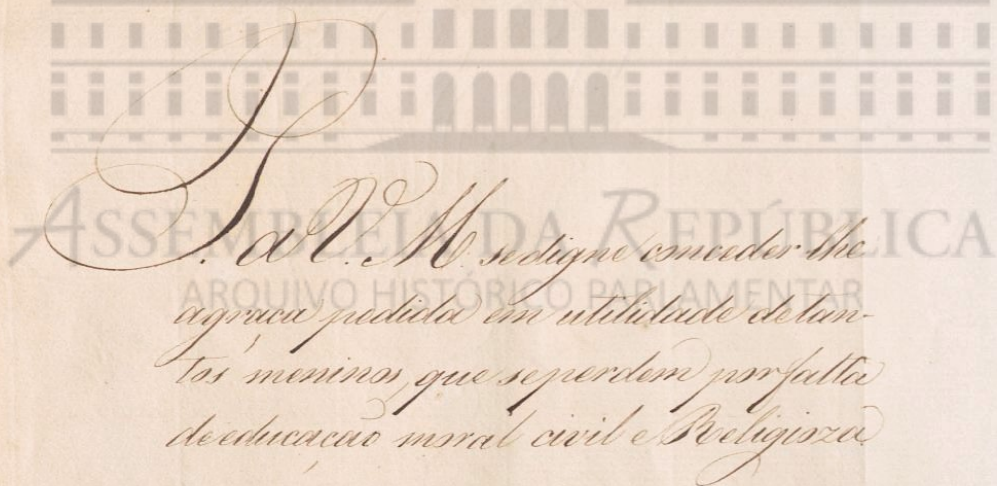 ASSEMBLEIA DA REPÚBLICA
ARQUIVO HISTÓRICO PARLAMENTAR
P. a V. M. se digne conceder lhe
a graça pedida em utilidade de tan-
tos meninos, que se perdem por falta
de educação moral civil e Religioza